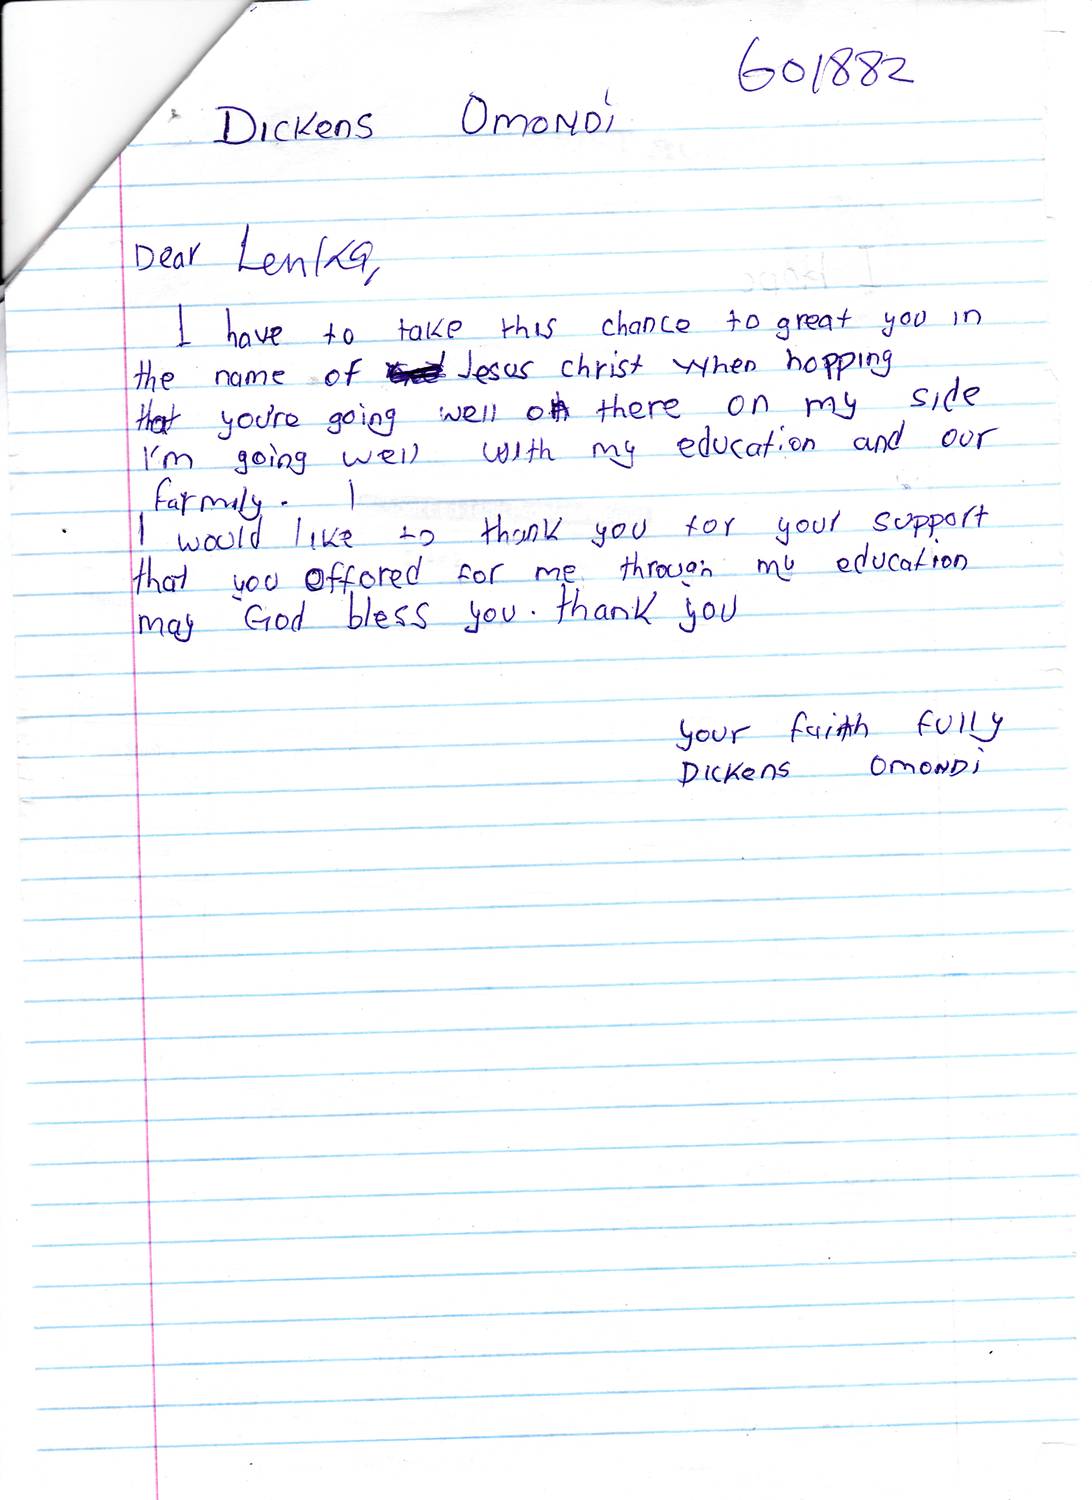 601882
Dickens Omondi
Dear Lenka,
I have to take this chance to great you in
the name of Jesus christ when hopping
that you're going well on there on my side
I'm going well with my education and our
farmily. I
I would like to thank you for your support
that you offored for me through my education
may God bless you. thank you
your faith fully
Dickens Omondi